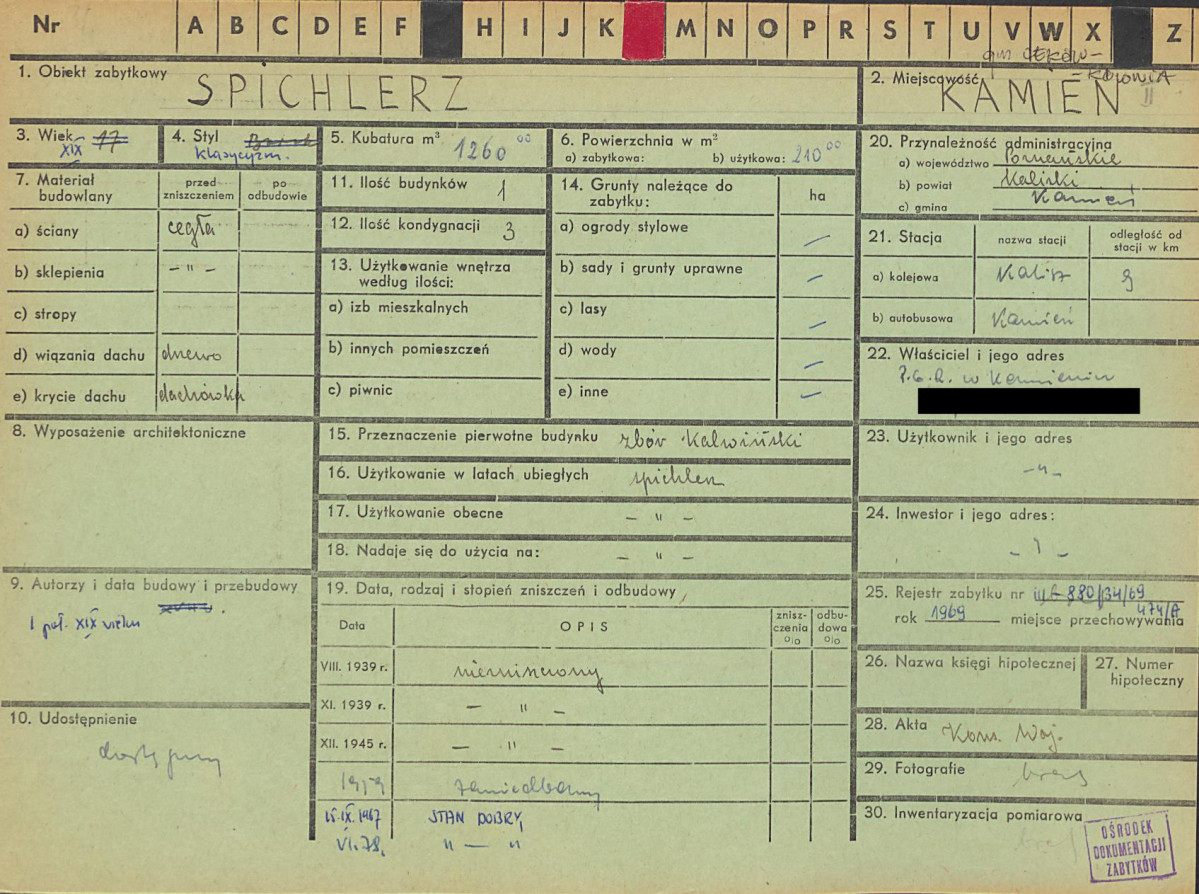 Nr A B C D E F H I J K M N O P R S T U V W X Z
gm CEKÓW-
-KOLONIA
1. Obiekt zabytkowy SPICHLERZ
2. Miejscowość KAMIEŃ
3. Wiek 17 XIX
4. Styl klasycyzm.
5. Kubatura m³ 1260 00
6. Powierzchnia w m²
a) zabytkowa: b) użytkowa: 210 00
7. Materiał budowlany
przed zniszczeniem
po odbudowie
a) ściany cegła
b) sklepienia – " –
c) stropy
d) wiązania dachu drewo
e) krycie dachu dachówka
8. Wyposażenie architektoniczne
9. Autorzy i data budowy i przebudowy
XVIII.
1 poł. XIX wieku
10. Udostępnienie
dostępny
11. Ilość budynków 1
12. Ilość kondygnacji 3
13. Użytkowanie wnętrza
według ilości:
a) izb mieszkalnych
b) innych pomieszczeń
c) piwnic
14. Grunty należące do
zabytku:
ha
a) ogrody stylowe —
b) sady i grunty uprawne —
c) lasy —
d) wody —
e) inne —
15. Przeznaczenie pierwotne budynku zbór Kalwiński
16. Użytkowanie w latach ubiegłych spichlerz
17. Użytkowanie obecne – " –
18. Nadaje się do użycia na: – " –
19. Data, rodzaj i stopień zniszczeń i odbudowy
Data OPIS
znisz-
czenia
%
odbu-
dowa
%
VIII. 1939 r. niezniszczony
XI. 1939 r. – " –
XII. 1945 r. – " –
1959 zaniedbany
15.IX.1967 STAN DOBRY,
VI.78. " — "
20. Przynależność administracyjna
a) województwo Poznańskie
b) powiat Kaliski
c) gmina Kamień
21. Stacja
nazwa stacji
odległość od
stacji w km
a) kolejowa Kalisz 9
b) autobusowa Kamień
22. Właściciel i jego adres
P.G.R. w Kamieniu
23. Użytkownik i jego adres
– " –
24. Inwestor i jego adres:
– ? –
25. Rejestr zabytku nr 880/34/69
474/A
rok 1969 miejsce przechowywania
26. Nazwa księgi hipotecznej
27. Numer
hipoteczny
28. Akta Kons. Woj.
29. Fotografie brak
30. Inwentaryzacja pomiarowa
brak
OŚRODEK
DOKUMENTACJI
ZABYTKÓW